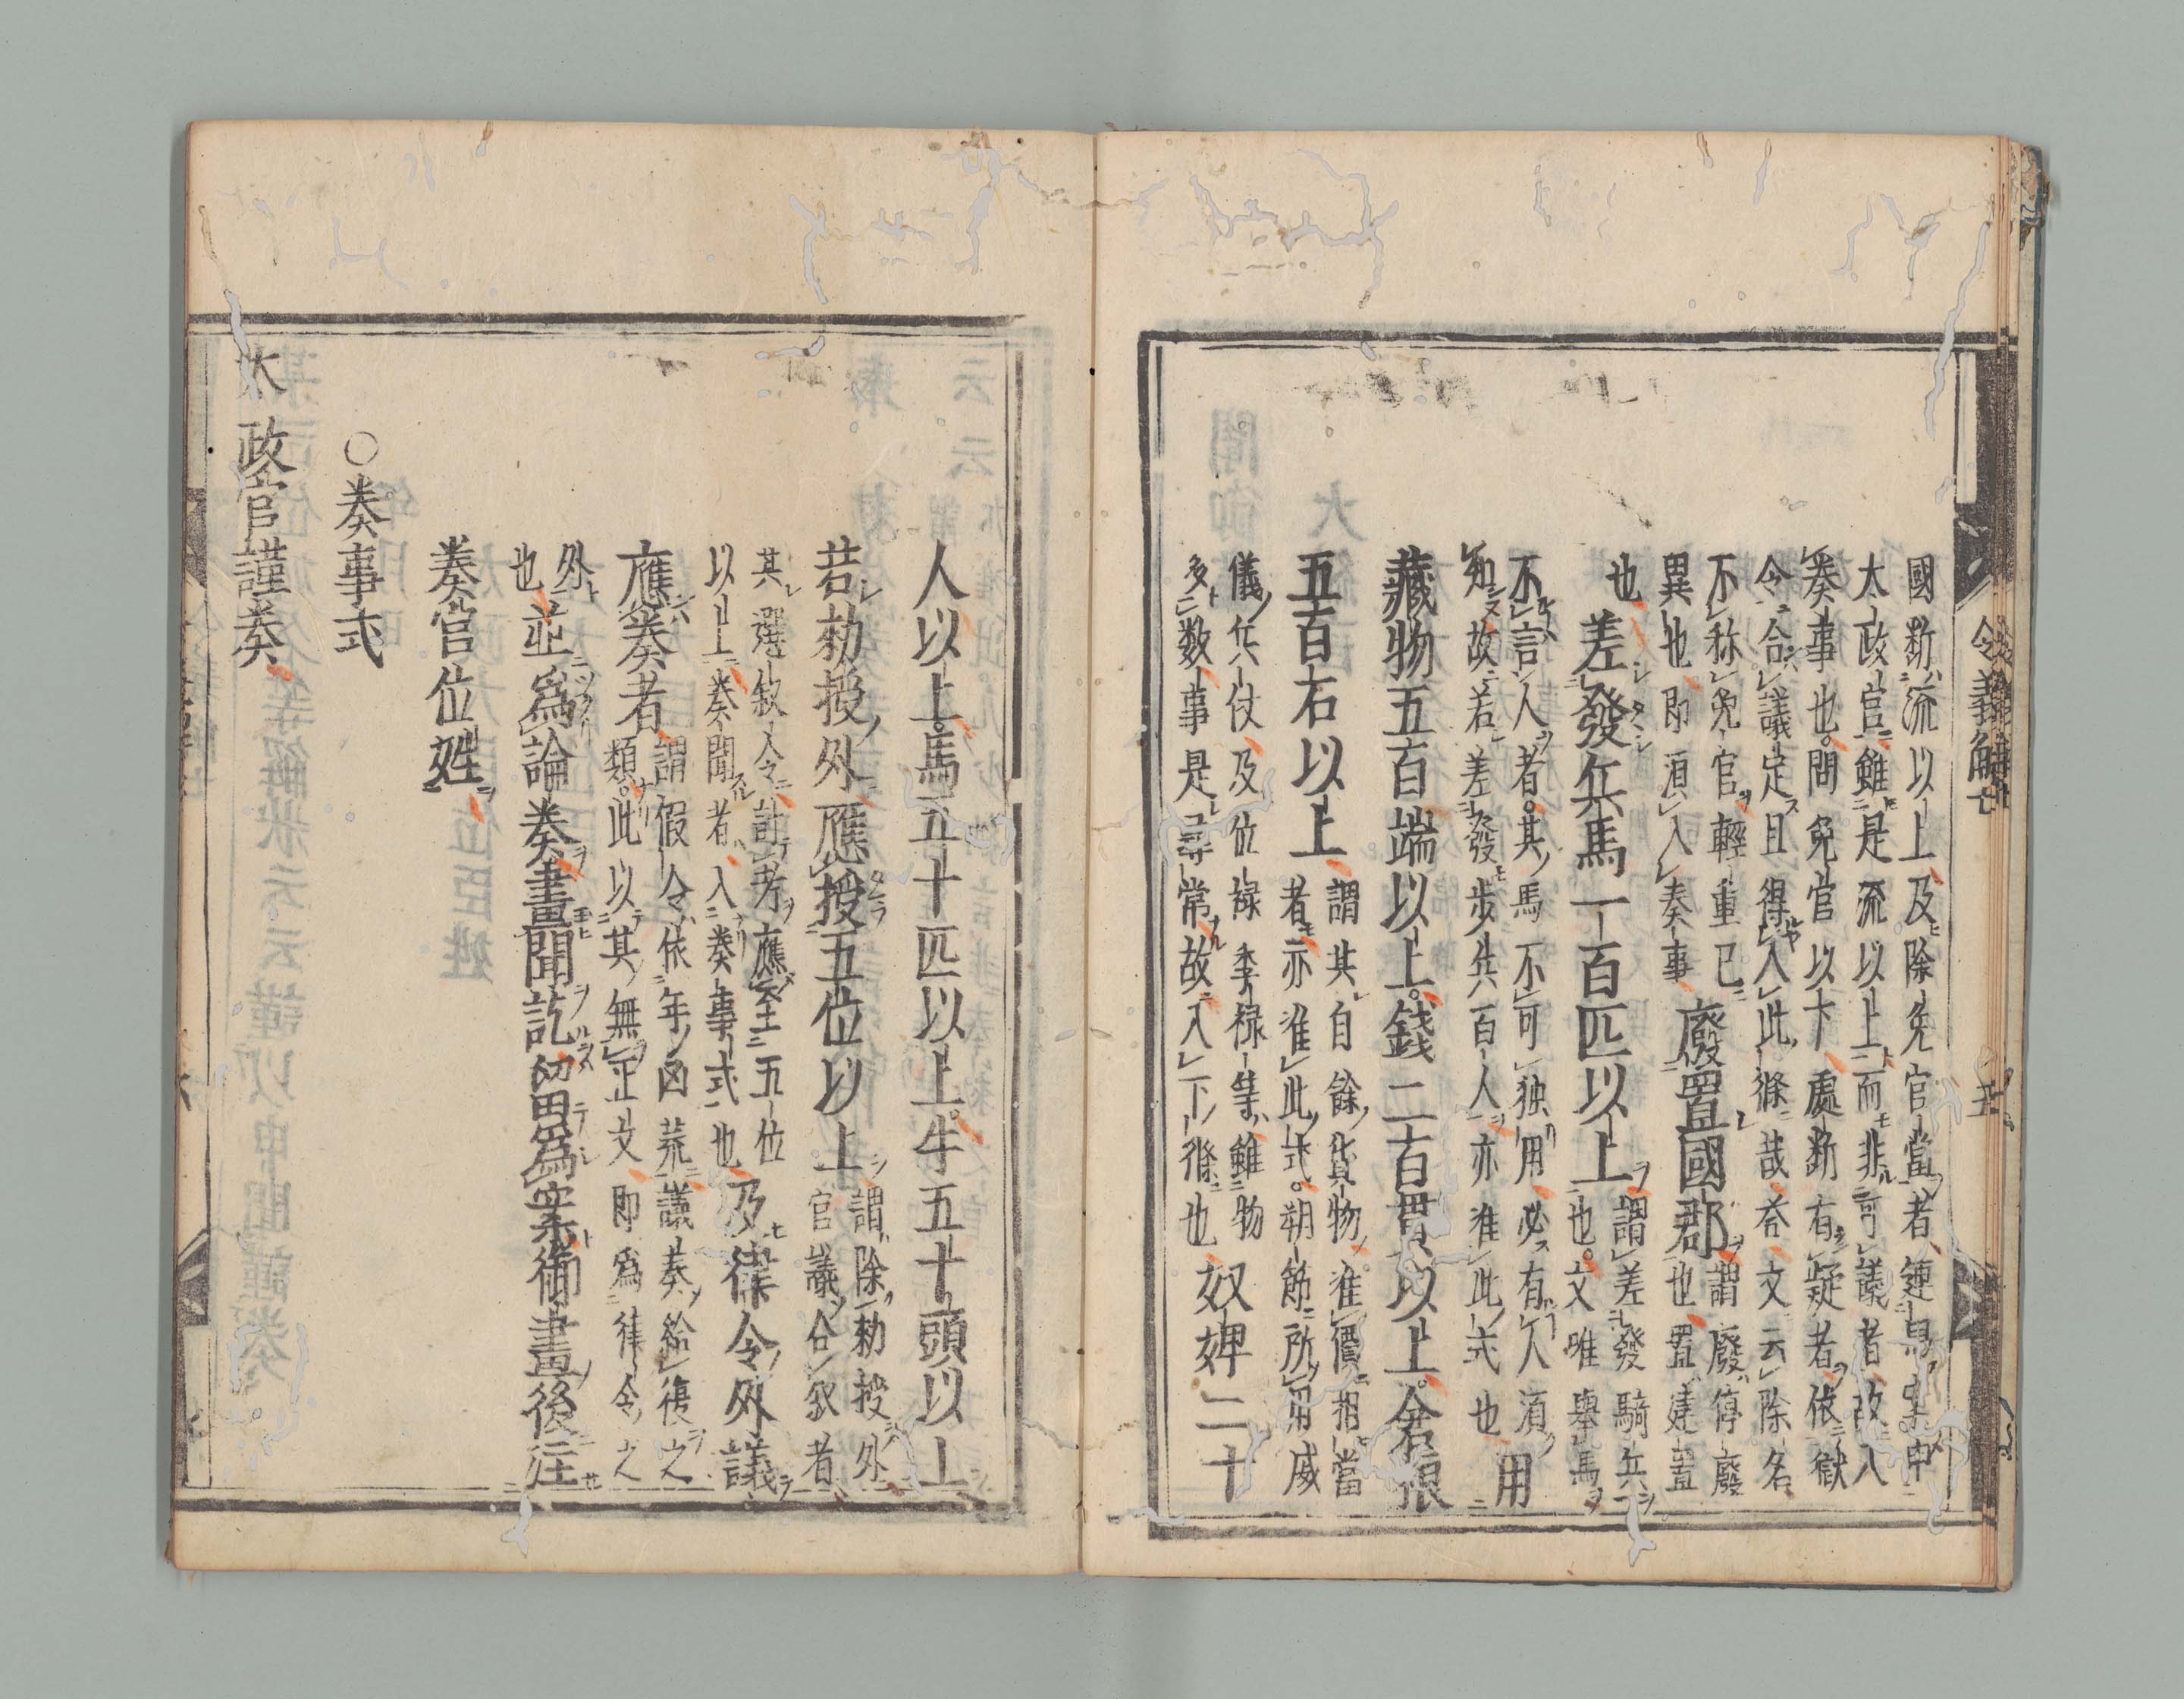 國断流以上及除免官當者連
太政官雖是流以上而非可議者故入
奏事也問免官以下處断有疑者依獄
令合議定且得入此條哉荅文云除名
不称免官輕重已
異也即湏入奏事
廢置國郡
謂廢停廢
也置建置
也
差發兵馬一百匹以上
謂差發騎兵
也文唯舉馬
不言人者其馬不可独用必有人湏
知故若差發歩兵百人亦准此式也
用
藏物五百端以上錢二百貫以上倉粮
五百石以上
謂其自餘貨物准價相當
者亦准此式朔節所用威
儀兵仗及位禄季禄等雖物
多数事是尋常故入下條也
奴婢二十
令義解七
五
人以上馬五十匹以上牛五十頭以上
若勑授外應授五位以上
謂除勑授外
官議合叙者
其選叙令計考應至五位
以上奏聞者入奏事式也
及律令外議
應奏者
謂假令依年凶荒議奏給復之
類此以其無正文即爲律令之
外
也
並爲論奏畫聞訖留爲案御畫後注
奏官位姓
○奏事式
太政官謹奏